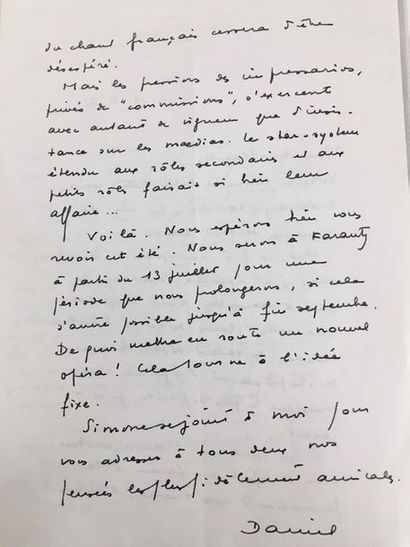 du chant français cessera d'être
désespéré.
Mais les pressions des impressarios,
privés de "commissions", s'exercent
avec autant de vigueur que d'insis-
tance sur les maedias. Le star-system
étendu aux rôles secondaires et aux
petits rôles faisait si bien leur
affaire...
Voilà. Nous espérons bien vous
revoir cet été. Nous serons à
à partir du 13 juillet pour une
période que nous prolongerons, si cela
s'avère possible jusqu'à fin septembre.
De quoi mettre en route un nouvel
opéra! Cela tourne à l'idée
fixe.
Simone se joint à moi pour
vous adresser à tous deux nos
pensées les plus fidèlement amicales.
Daniel